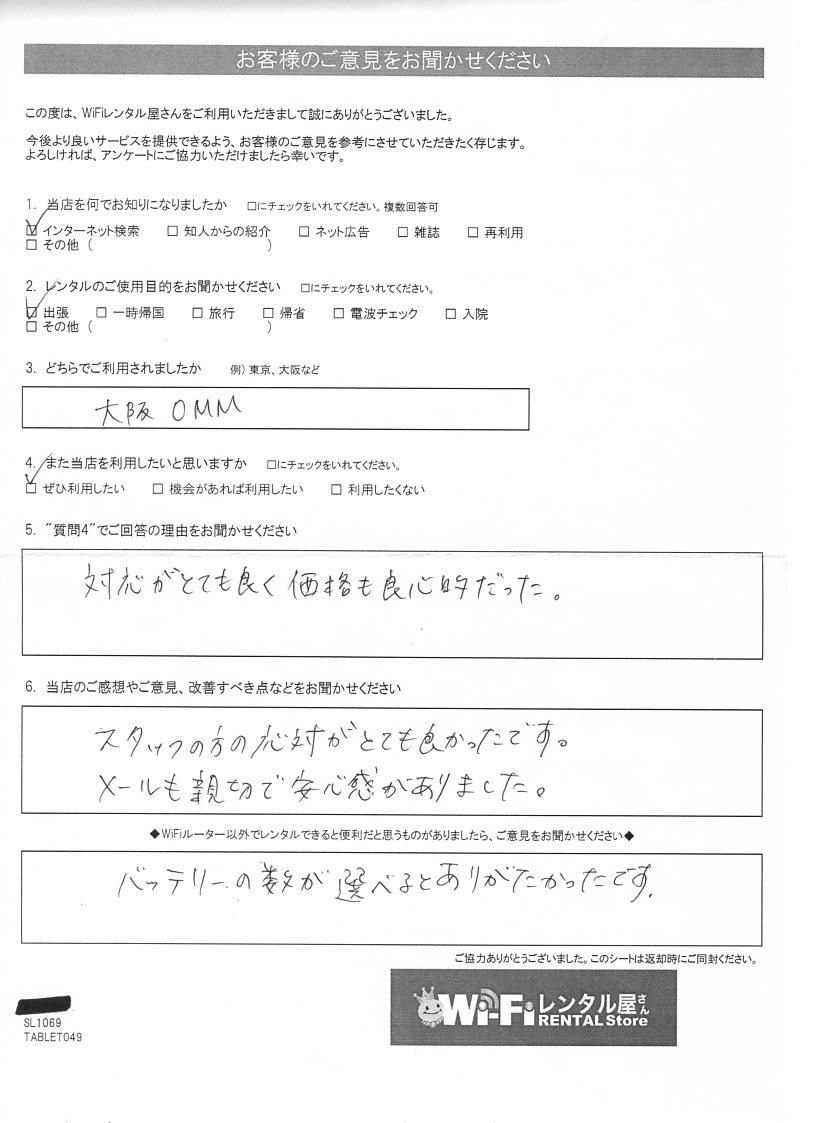 お客様のご意見をお聞かせください
この度は、WiFiレンタル屋さんをご利用いただきまして誠にありがとうございました。
今後より良いサービスを提供できるよう、お客様のご意見を参考にさせていただきたく存じます。
よろしければ、アンケートにご協力いただけましたら幸いです。
1. 当店を何でお知りになりましたか □にチェックをいれてください。複数回答可
☑ インターネット検索 □ 知人からの紹介 □ ネット広告 □ 雑誌 □ 再利用
□ その他 ( )
2. レンタルのご使用目的をお聞かせください □にチェックをいれてください。
☑ 出張 □ 一時帰国 □ 旅行 □ 帰省 □ 電波チェック □ 入院
□ その他 ( )
3. どちらでご利用されましたか 例) 東京、大阪など
大阪 OMM
4. また当店を利用したいと思いますか □にチェックをいれてください。
☑ ぜひ利用したい □ 機会があれば利用したい □ 利用したくない
5. "質問4"でご回答の理由をお聞かせください
対応がとても良く価格も良心的だった。
6. 当店のご感想やご意見、改善すべき点などをお聞かせください
スタッフの方の応対がとても良かったです。
メールも親切で安心感がありました。
◆WiFiルーター以外でレンタルできると便利だと思うものがありましたら、ご意見をお聞かせください◆
バッテリーの数が選べるとありがたかったです。
ご協力ありがとうございました。このシートは返却時にご同封ください。
Wi-Fiレンタル屋さん
RENTAL Store
SL1069
TABLET049